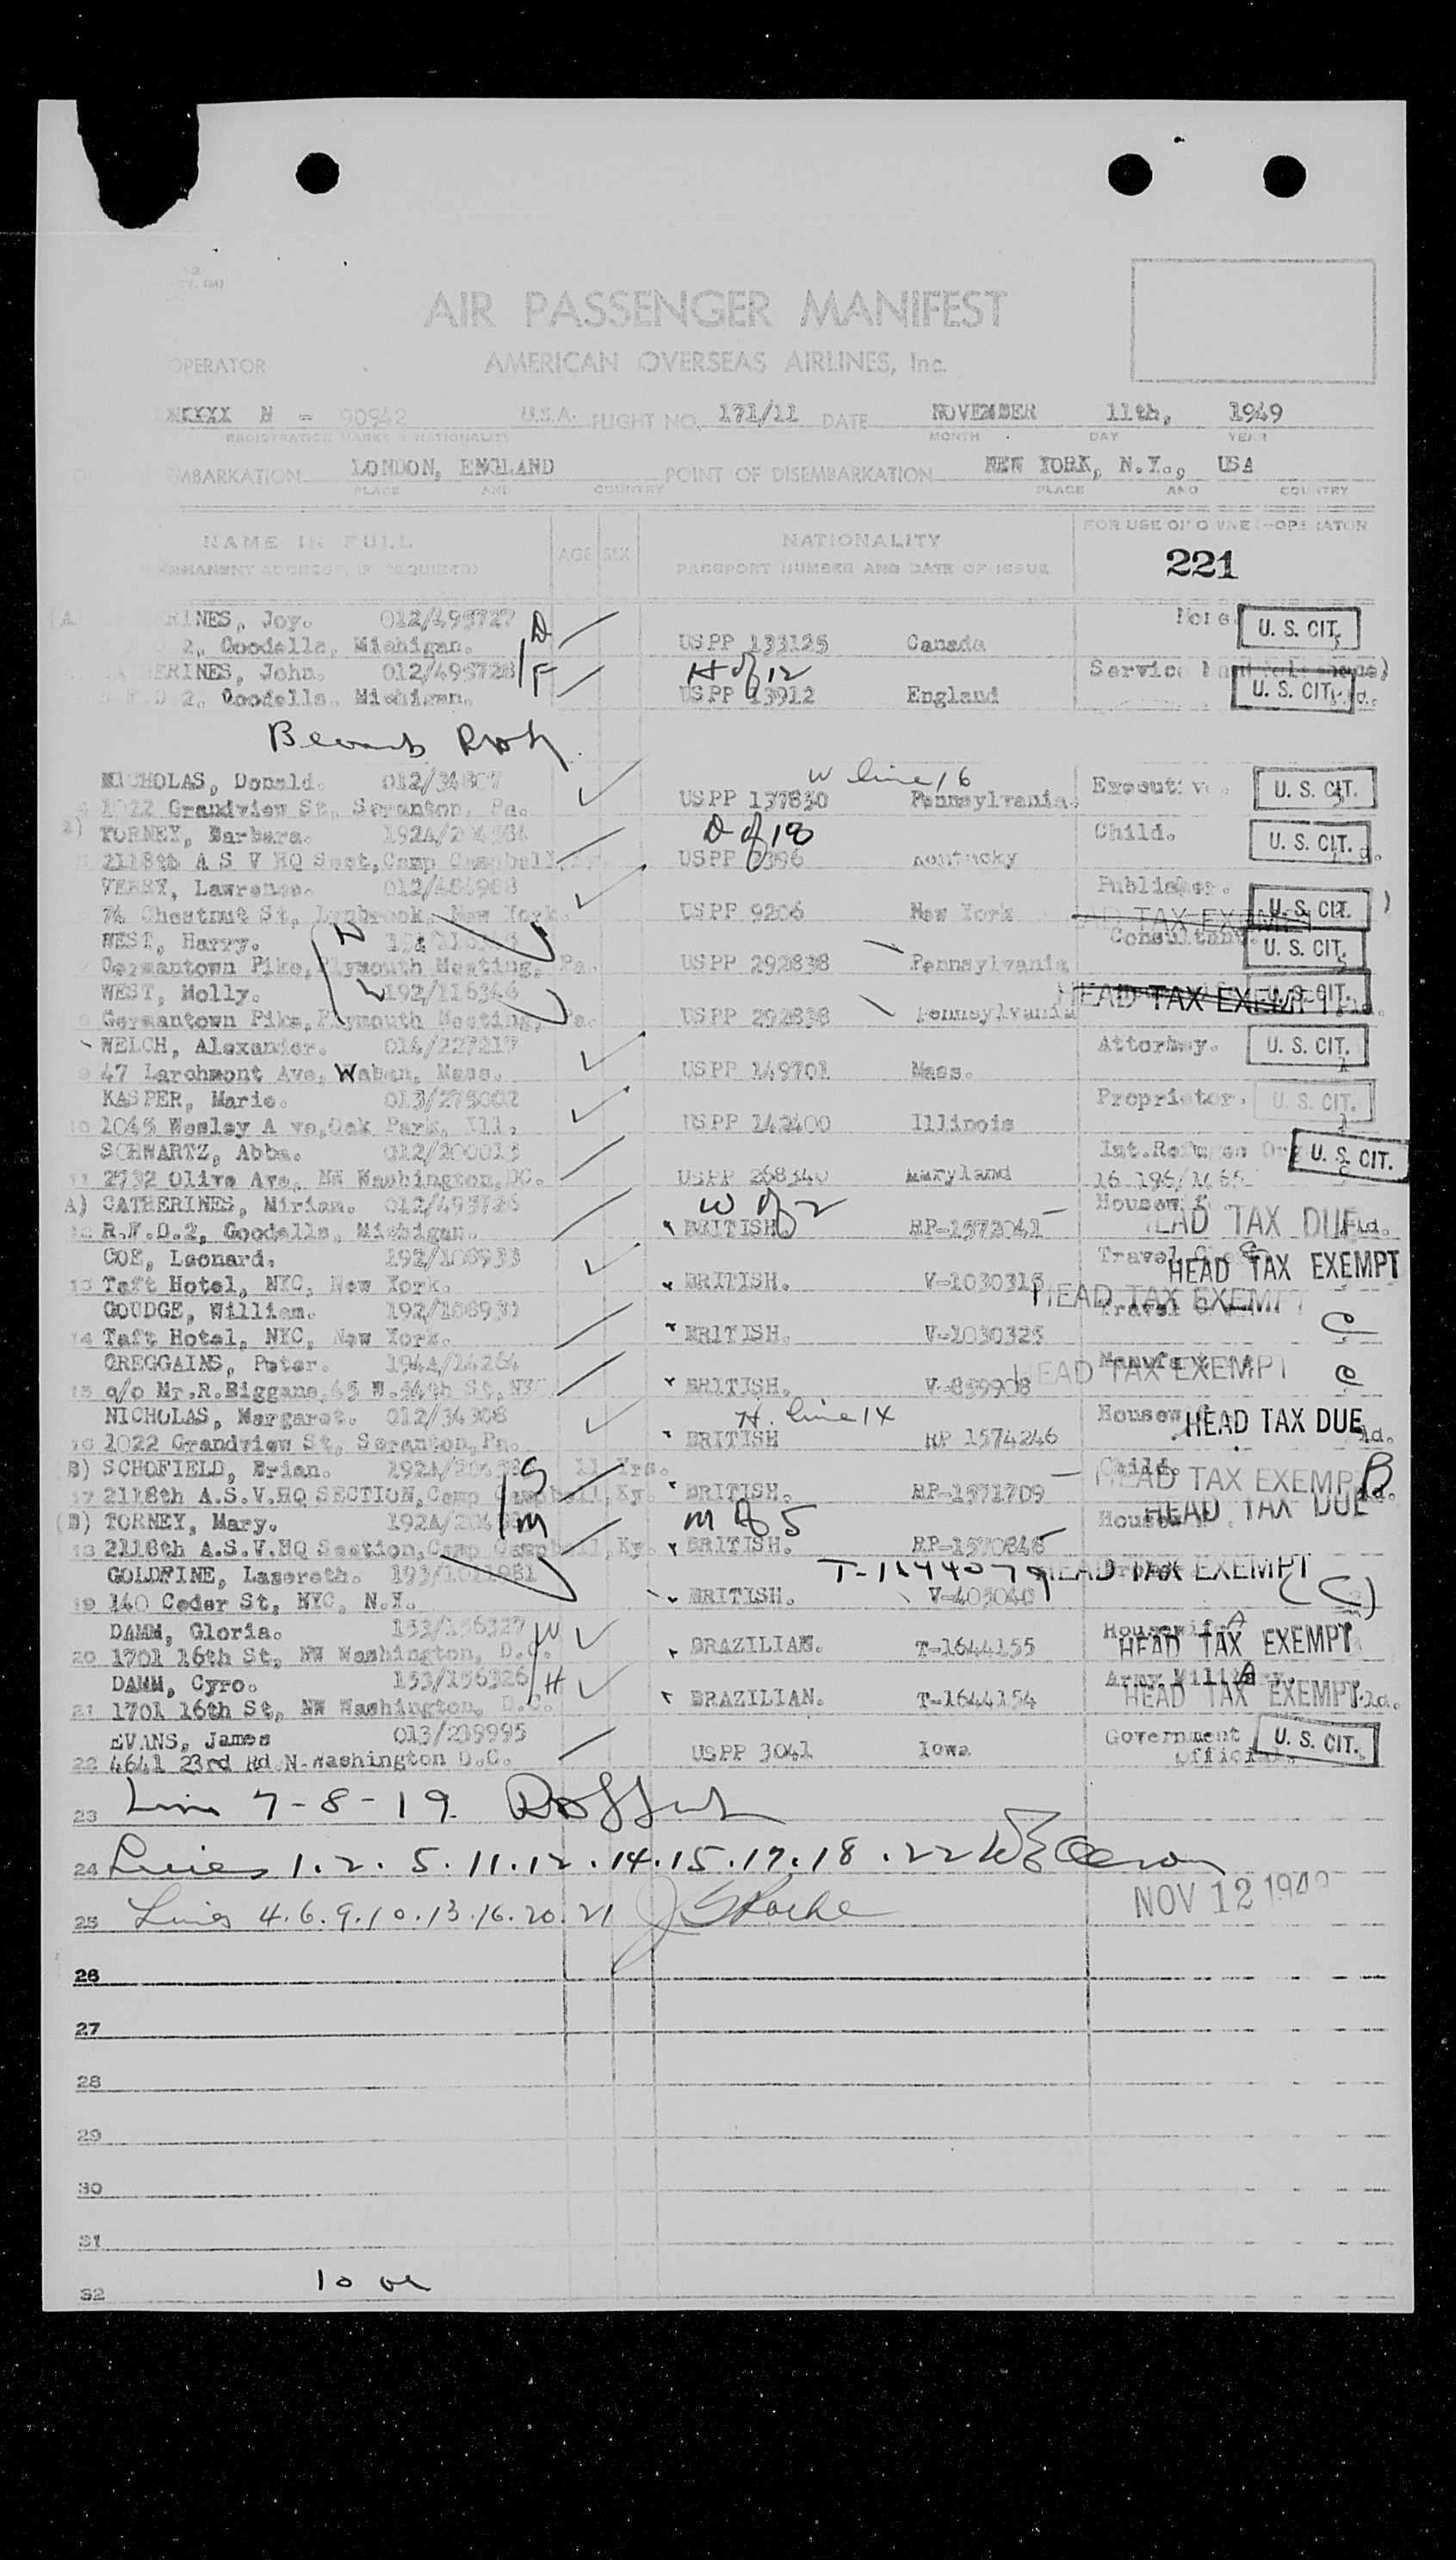 AIR PASSENGER MANIFEST
OPERATOR
AMERICAN OVERSEAS AIRLINES, Inc.
N - 90942 U.S.A. FLIGHT NO. 171/11 DATE NOVEMBER 11th, 1949
REGISTRATION MARKS & NATIONALITY MONTH DAY YEAR
MBARKATION LONDON, ENGLAND POINT OF DISEMBARKATION NEW YORK, N.Y., USA
PLACE AND COUNTRY PLACE AND COUNTRY
NAME IN FULL AGE SEX NATIONALITY FOR USE OF OWNER-OPERATOR
PERMANENT ADDRESS (IF REQUIRED) PASSPORT NUMBER AND DATE OF ISSUE 221
(A) RINES, Joy. 012/495727 D None U. S. CIT.
2, Goodells, Michigan. USPP 133125 Canada
HERINES, John. 012/495728 F H of 12 Service
D 2, Goodells, Michigan. USPP 13912 England U. S. CIT.
MICHOLAS, Donald. 012/34307 W line 16 Executive. U. S. CIT.
4 1022 Grandview St, Scranton, Pa. USPP 137850 Pennsylvania.
TORNEY, Barbara. 192A/ D of 18 Child. U. S. CIT.
5 2118th A S V HQ Sect, Camp Campbell, USPP 2396 Kentucky
VERRY, Lawrence. 012/484988 Publisher. U. S. CIT.
74 Chestnut St, Lynbrook, New York. USPP 9206 New York HEAD TAX EXEMPT
WEST, Harry. H Consultant. U. S. CIT.
7 Germantown Pike, Plymouth Meeting, Pa. USPP 292838 Pennsylvania
WEST, Molly. W 192/116346 HEAD TAX EXEMPT U. S. CIT.
8 Germantown Pike, Plymouth Meeting, Pa. USPP 292838 Pennsylvania
WELCH, Alexander. 014/227217 Attorney. U. S. CIT.
9 47 Larchmont Ave, Waban, Mass. USPP 149701 Mass.
KASPER, Marie. 013/275002 Proprietor. U. S. CIT.
10 1045 Wesley A ve, Oak Park, Ill. USPP 142400 Illinois
SCHWARTZ, Abba. 012/200013 Int. Refugee Org U. S. CIT.
11 2732 Olive Ave, NW Washington, DC. USPP 268340 Maryland
A) CATHERINES, Miriam. 012/495726 W of 2 Housew HEAD TAX DUE
12 R.F.D.2, Goodells, Michigan. BRITISH RP-1572041
COE, Leonard. 192/108933 Travel HEAD TAX EXEMPT
13 Taft Hotel, NYC, New York. BRITISH. V-1030315
GOUDGE, William. 192/108931 HEAD TAX EXEMPT Travel
14 Taft Hotel, NYC, New York. BRITISH. V-1030325 C
GREGGAINS, Peter. 194A/14264 HEAD TAX EXEMPT
15 c/o Mr.R.Biggane, 45 W.54th St, NYC BRITISH. V-859908 C
NICHOLAS, Margaret. 012/34308 H. line 14 Housew HEAD TAX DUE
16 1022 Grandview St, Scranton, Pa. BRITISH RP 1574246
B) SCHOFIELD, Brian. 192A/ S 11 Yrs. Child. HEAD TAX EXEMPT B
17 2118th A.S.V.HQ SECTION, Camp Campbell, Ky. BRITISH. RP-1571709 HEAD TAX DUE
(B) TORNEY, Mary. 192A/ M M of 5
18 2118th A.S.V.HQ Section, Camp Campbell, Ky. BRITISH. RP-1570848
GOLDFINE, Lasereth. 193/1011981 T-1644079 HEAD TAX EXEMPT
19 140 Ceder St, NYC, N.Y. BRITISH. V-405040 (C)
DAMM, Gloria. 153/156327 W Housewife HEAD TAX EXEMPT
20 1701 16th St, NW Washington, D.C. BRAZILIAN. T-1644155
DAMM, Cyro. 153/156326 H Army Military. HEAD TAX EXEMPT
21 1701 16th St, NW Washington, D.C. BRAZILIAN. T-1644154
EVANS, James 013/289995 Government Official. U. S. CIT.
22 4641 23rd Rd N. Washington D.C. USPP 3041 Iowa
23 Line 7-8-19
24 Lines 1.2.5.11.12.14.15.17.18.22
25 Lines 4.6.9.10.13.16.20.21 NOV 12 1949
26
27
28
29
30
31
32 10